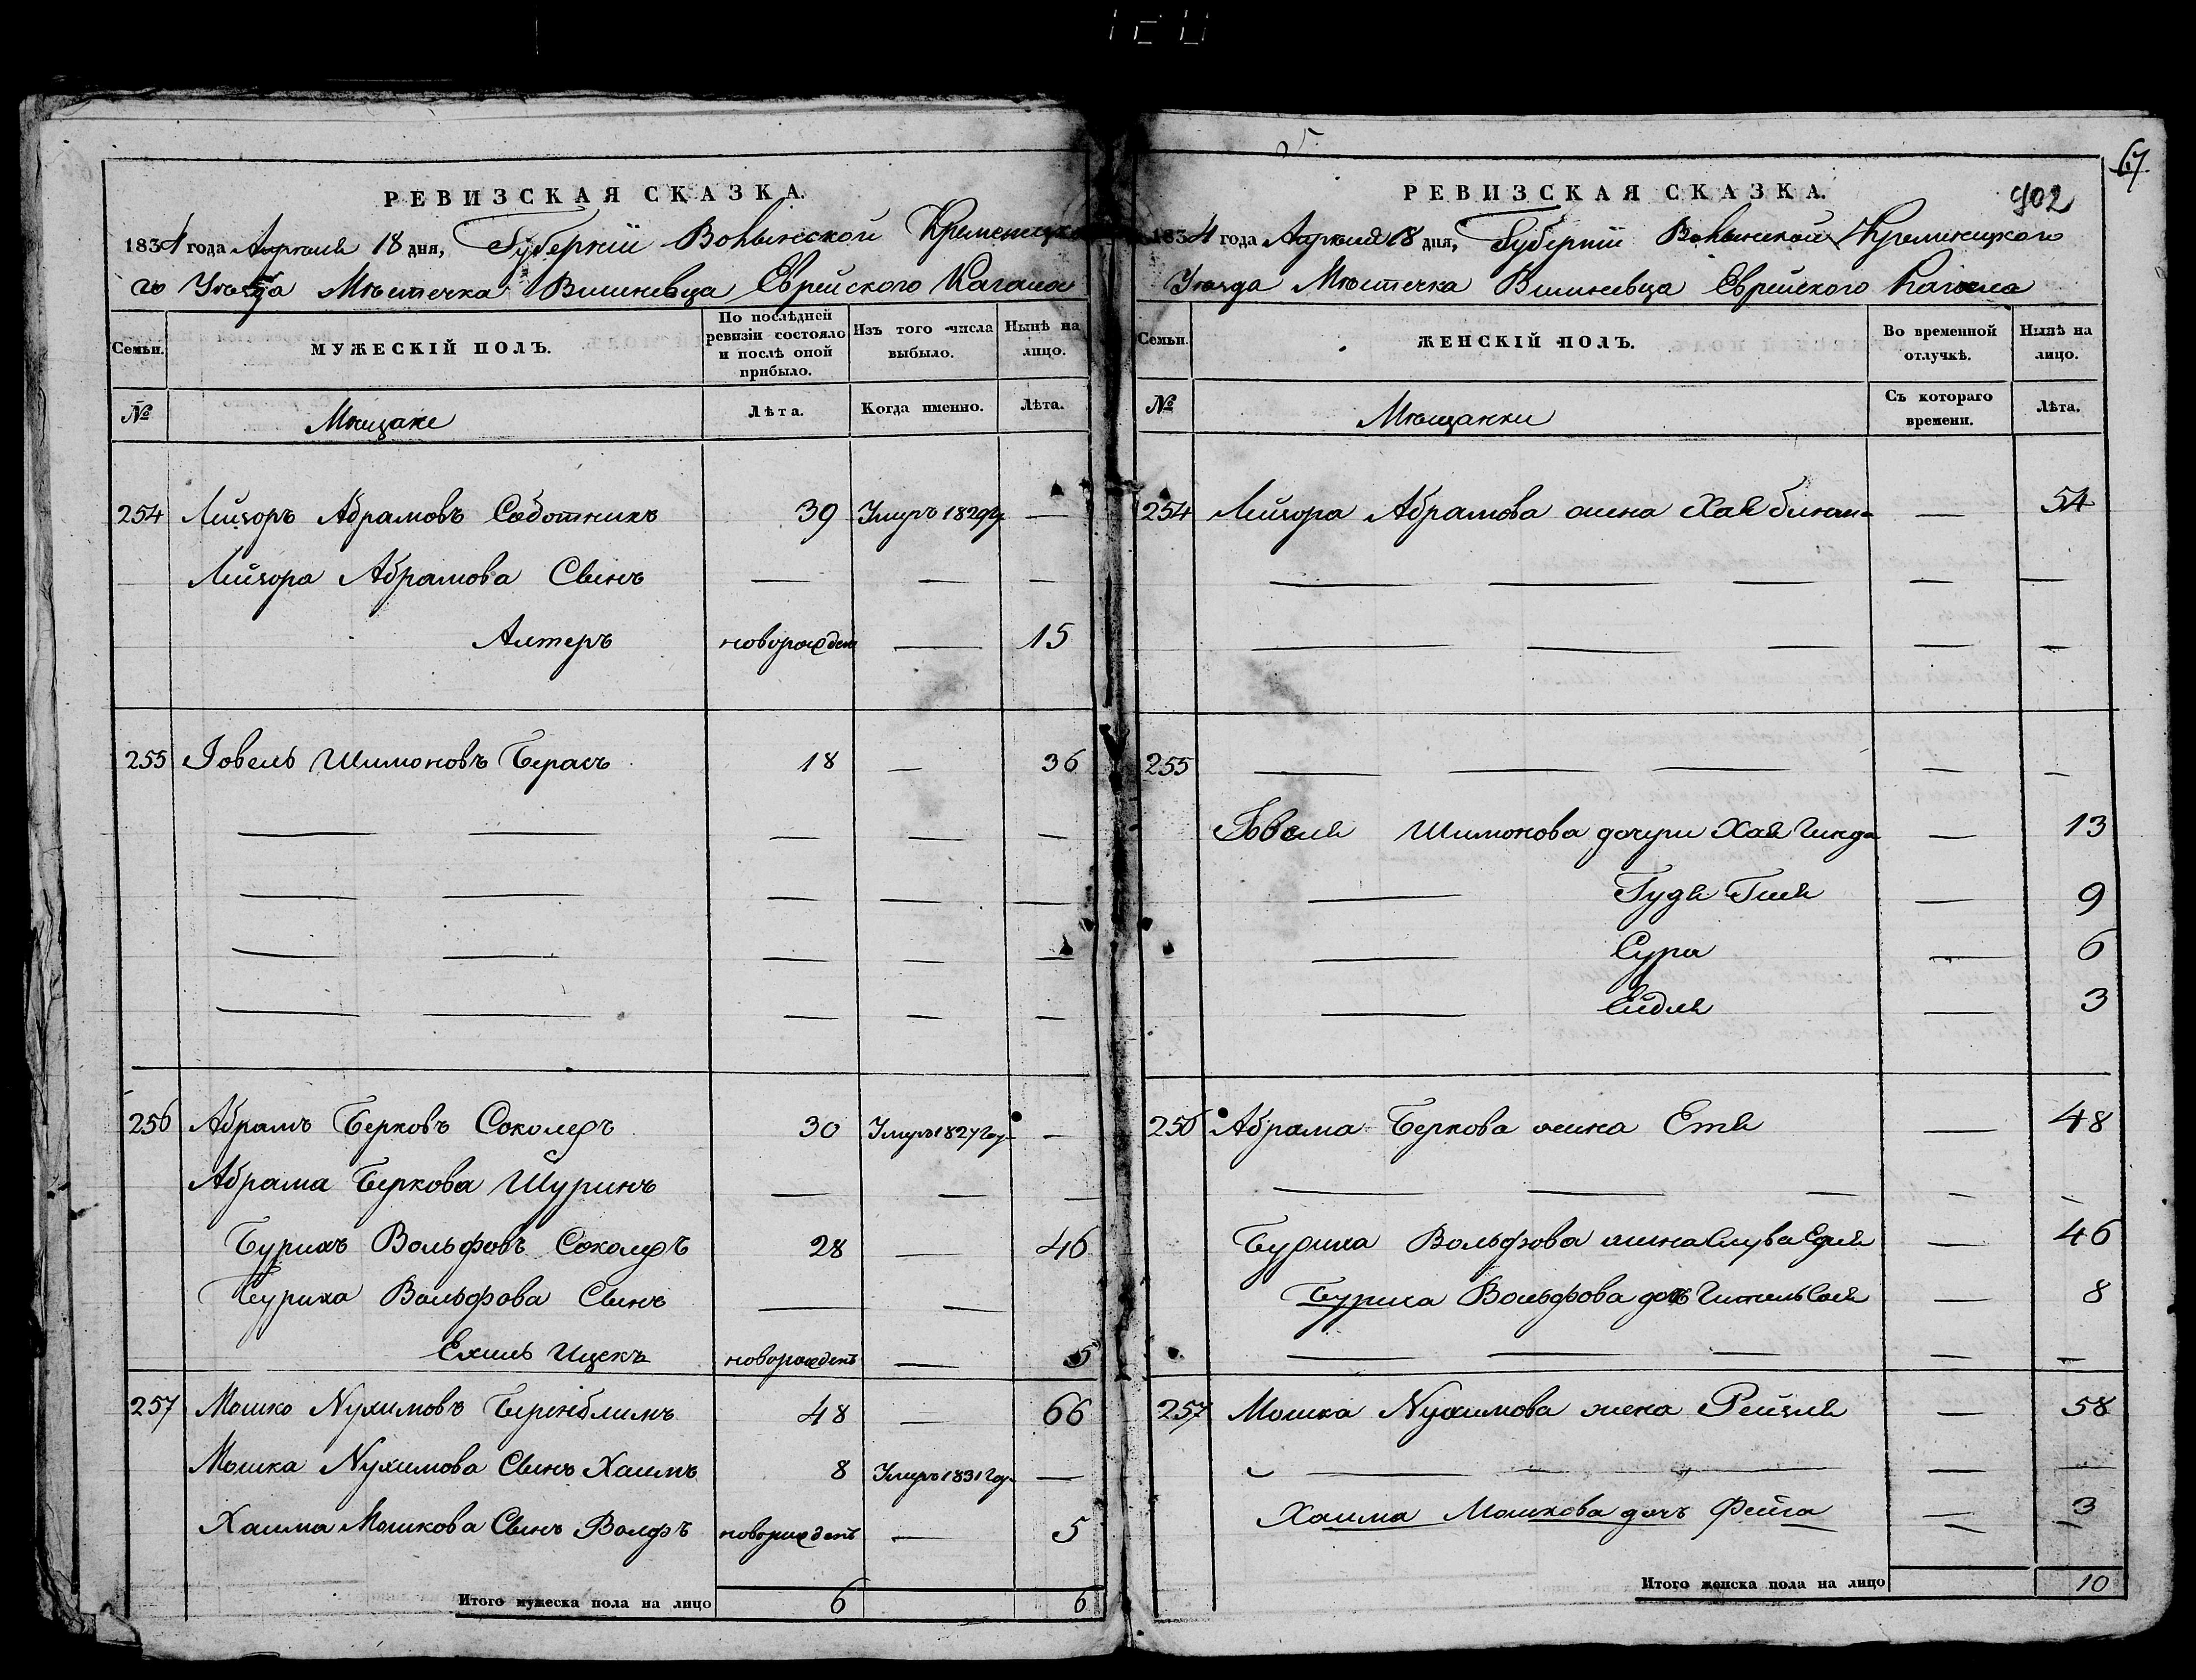 РЕВИЗСКАЯ СКАЗКА.
1834 года Апреля 18 дня, Губернїи Волынской Кременецка
го Уезда Мѣстечка Вишневца Еврейского Кагала
Семьи.
МУЖЕСКІЙ ПОЛЪ.
По послѣдней ревизіи состояло и послѣ оной прибыло.
Изъ того числа выбыло.
Нынѣ на лицо.
№
Мещане
Лѣта.
Когда именно.
Лѣта.
254 Лейзоръ Абрамовъ Саботникъ 39 Умеръ 1829 —
Лейзора Абрамова Сынъ — — —
Алтеръ новорожден — 15
255 Іовель Шимоновъ 18 — 36
— — — — —
— — — — —
— — — — —
— — — — —
256 Абрамъ Берковъ Соколеръ 30 Умеръ 1827 го. —
Абрама Беркова Шуринъ — — —
Бурихъ Вольфовъ Соколеръ 28 — 46
Буриха Вольфова Сынъ — —
Ехиль Ицекъ новорожденъ — 5
257 Мошко Нухимовъ 48 — 66
Мошка Нухимова Сынъ Хаимъ 8 Умеръ 1831 го. —
Хаима Мошкова Сынъ Волфъ новорожденъ — 5
Итого мужеска пола на лицо 6 6
67
РЕВИЗСКАЯ СКАЗКА.
902
1834 года Апреля 18 дня, Губернїи Волынской Кременецкого
Уезда Мѣстечка Вишневца Еврейского Кагала
Семьи.
ЖЕНСКІЙ ПОЛЪ.
Во временной отлучкѣ.
Нынѣ на лицо.
№
Мѣщанки
Съ котораго времени.
Лѣта.
254 Лейзора Абрамова жена Хая — 54
— — — — —
— — — — —
255 — — — — —
Іовеля Шимонова дочери Хая Гинда — 13
— Гудя — 9
— Сура — 6
— Ейдля — 3
256 Абрама Беркова жена Етя — 48
— — — — —
Буриха Вольфова жена Слува Едля — 46
Буриха Вольфова дочь Гитель — 8
— — — — —
257 Мошка Нухимова жена Рейзля — 58
— — — — —
Хаима Мошкова дочь Фейга — 3
Итого женска пола на лицо 10